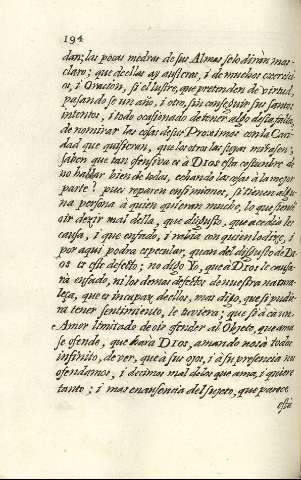 194
dan; las pocas medras de sus Almas selo dirán mas
claro; que de ellas ay austeras, i de muchos exerci-
os, i Oracion, si el lustre, que pretenden de virtud,
pasandose un año, i otro, sin conseguir sus santos
intentos, i todo ocasionado de tener algo desta falta,
de nominar las cosas de sus Proximos con la Cari-
dad que quisieran, que las otras las suyas mirasen;
saben que tan ofensiva es à Dios esta costumbre de
no hablar bien de todos, echando las cosas à la mejor
parte? pues reparen en si mismos, si tienen algu-
na persona à quien quieran mucho, lo que sienten
oir dezir mal della, que disgusto, que acedia les
causa, i que enfado, i rabia con quien lo dize; i
por aqui podra especular, quan del disgusto de Di-
os es este defecto; no digo Yo, que à Dios le causa-
rà enfado, ni los demas defetos de nuestra natura-
leça, que es incapaz dellos, mas digo, que si pudie-
ra tener sentimiento, le tuviera; que si à un
Amor limitado de oir ofender al Objeto, que ama
se ofende, que hara Dios, amando nos à todos
infinito, de ver, que à sus ojos, i à su presencia nos
ofendamos, i decimos mal de los que ama, i quiere
tanto; i mas en ausencia del sujeto, que parece
está